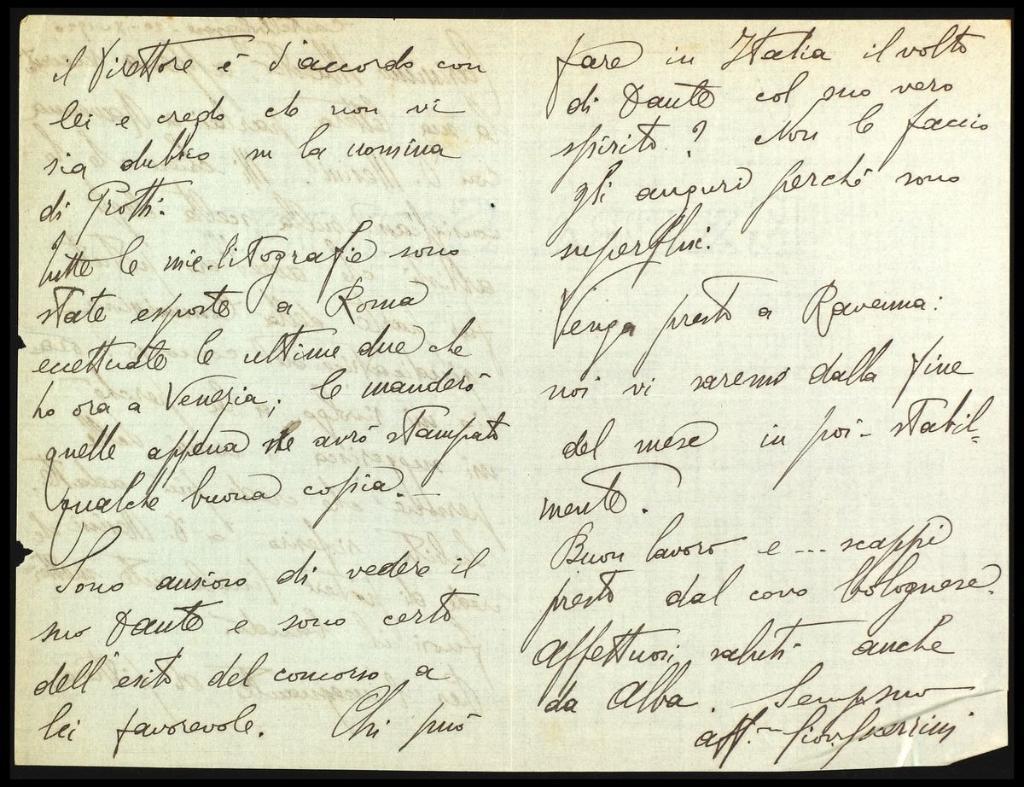 il Direttore è d'accordo con
lei e credo che non vi
sia dubbio su la nomina
di Protti.
Tutte le mie litografie sono
state esposte a Roma
eccettuate le ultime due che
ho ora a Venezia; le manderò
quelle appena ne avrò stampato
qualche buona copia.
Sono ansioso di vedere il
suo Dante e sono certo
dell'esito del concorso a
lei favorevole. Chi può
fare in Italia il volto
di Dante col suo vero
spirito? Non le faccio
gli auguri perchè sono
superflui.
Venga presto a Ravenna:
noi vi saremo dalla fine
del mese in poi - stabil=
mente.
Buon lavoro e ... scappi
presto dal covo bolognese.
Affettuosi saluti anche
da Alba. Semp suo
aff. Giov. Guerrini